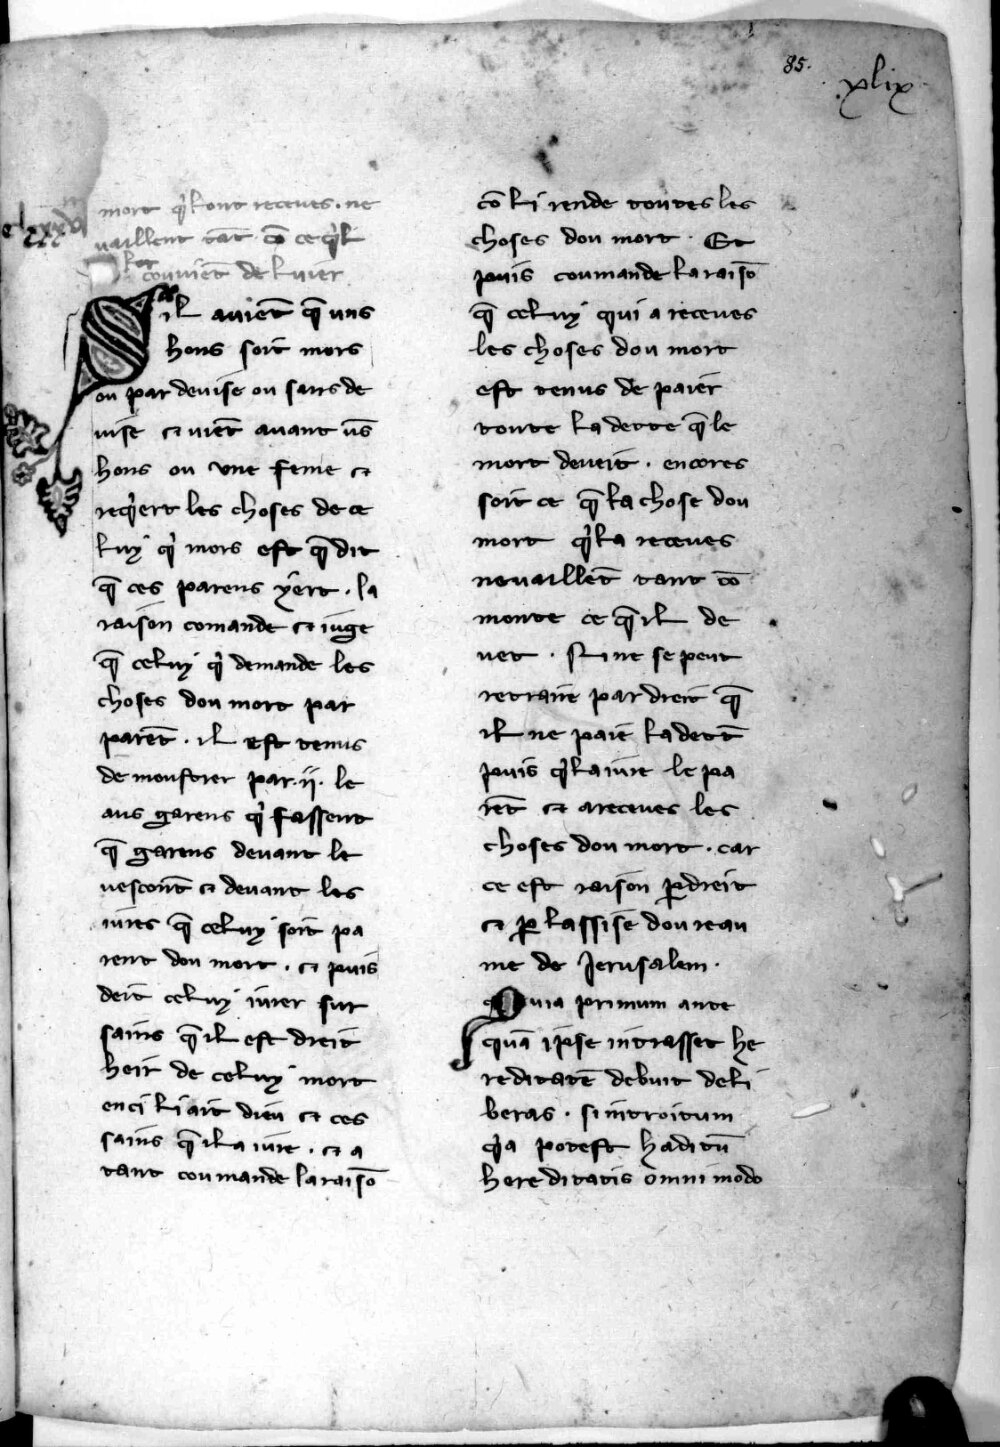 85.
xlix
clxxxvi
mort q̓l ont receues . ne
vaillent tāt cō ce q̓l
lor couvient delivrer
Sil avient q̄ uns
hons soit mors
ou par devise ou sans de
vise et viēt avant ūs
hons ou une feme et
req̓ert les choses de ce
luy q̓ mors est q̄ dit
q̄ ces parens yert . la
raison comande et iuge
q̄ celuy q̓ demande les
choses dou mort par
parēt . il est tenus
de moustrer par .ii. le
aus garens q̓ fassent
q̄ garens devant le
vescont et devant les
iures q̄ celuy soit pa
rent dou mort . et puis
deit celuy iurer sur
sains q̄ il est dreit
heir de celuy mort
enci li ait dieu et ces
sains q̄ il a iure . et a
tant coumande la raisō
cō li rende toutes les
choses dou mort . Et
puis coumande la raisō
q̄ celuy qui a receues
les choses dou mort
est tenus de paier
toute la dette q̄ le
mort deveit . encores
soit ce q̄ la chose dou
mort q̓l a receues
ne vaillēt tant cō
monte ce q̄ il de
vet . Ni ne se peut
retraire par dreit q̄
il ne paie la dettē
puis q̓l a iure le pa
rēt et a receues les
choses dou mort . car
ce est raison ꝑ dreit
et ꝑ l assise dou reau
me de Jerusalem .
Quia primum ante
quā ipse intrasset he
reditatē debuit deli
beras . si introitum
q̓a potest haditū
hereditatis omni modo